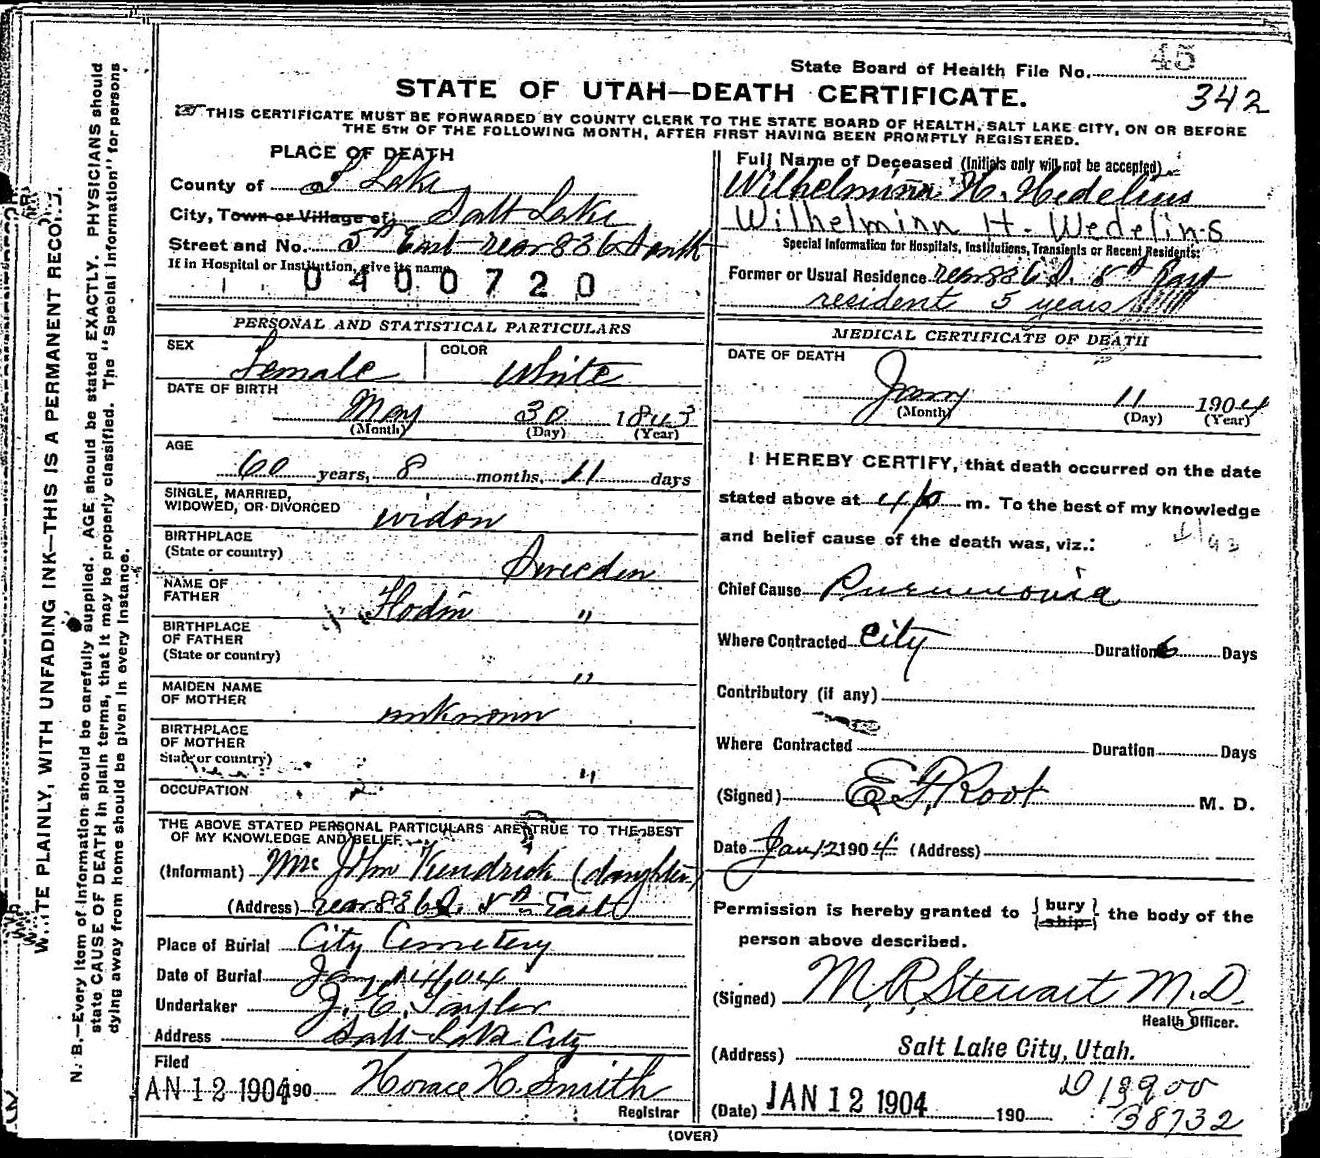 45
State Board of Health File No.
342
STATE OF UTAH—DEATH CERTIFICATE.
THIS CERTIFICATE MUST BE FORWARDED BY COUNTY CLERK TO THE STATE BOARD OF HEALTH, SALT LAKE CITY, ON OR BEFORE
THE 5TH OF THE FOLLOWING MONTH, AFTER FIRST HAVING BEEN PROMPTLY REGISTERED.
WRITE PLAINLY, WITH UNFADING INK—THIS IS A PERMANENT RECORD.
N. B.—Every item of information should be carefully supplied. AGE should be stated EXACTLY. PHYSICIANS should
state CAUSE OF DEATH in plain terms, that it may be properly classified. The "Special Information" for persons
dying away from home should be given in every instance.
PLACE OF DEATH
County of S Lake
City, Town or Village of Salt Lake
Street and No. 5th East rear 836 South
If in Hospital or Institution, give its name
0400720
PERSONAL AND STATISTICAL PARTICULARS
SEX Female COLOR White
DATE OF BIRTH
May 30 1843
(Month) (Day) (Year)
AGE
60 years, 8 months, 11 days
SINGLE, MARRIED,
WIDOWED, OR DIVORCED widow
BIRTHPLACE
(State or country) Sweeden
NAME OF
FATHER Hodin "
BIRTHPLACE
OF FATHER
(State or country) "
MAIDEN NAME
OF MOTHER unknown
BIRTHPLACE
OF MOTHER
State or country) "
OCCUPATION
THE ABOVE STATED PERSONAL PARTICULARS ARE TRUE TO THE BEST
OF MY KNOWLEDGE AND BELIEF.
(Informant) Mrs John Kendrick (daughter)
(Address) rear 836 S. 5th East
Place of Burial City Cemetery
Date of Burial Jan 14/04
Undertaker J. E. Taylor
Address Salt Lake City
Filed
AN 12 1904 190 Horace H. Smith
Registrar
Full Name of Deceased (Initials only will not be accepted)
Wilhelmina H. Hedelius
Wilhelminn H. Wedelins
Special Information for Hospitals, Institutions, Transients or Recent Residents:
Former or Usual Residence rear 836 S. 5th East
resident 5 years
MEDICAL CERTIFICATE OF DEATH
DATE OF DEATH
Jany 11 1904
(Month) (Day) (Year)
I HEREBY CERTIFY, that death occurred on the date
stated above at 4 p m. To the best of my knowledge
and belief cause of the death was, viz.:
Chief Cause Pneumonia
Where Contracted City Duration 6 Days
Contributory (if any)
Where Contracted Duration Days
(Signed) E. F. Root M. D.
Date Jan 12 1904 (Address)
Permission is hereby granted to { bury / ship } the body of the
person above described.
(Signed) M. R. Stewart M.D.
Health Officer.
(Address) Salt Lake City, Utah.
(Date) JAN 12 1904 190
D 13900
38732
(OVER)